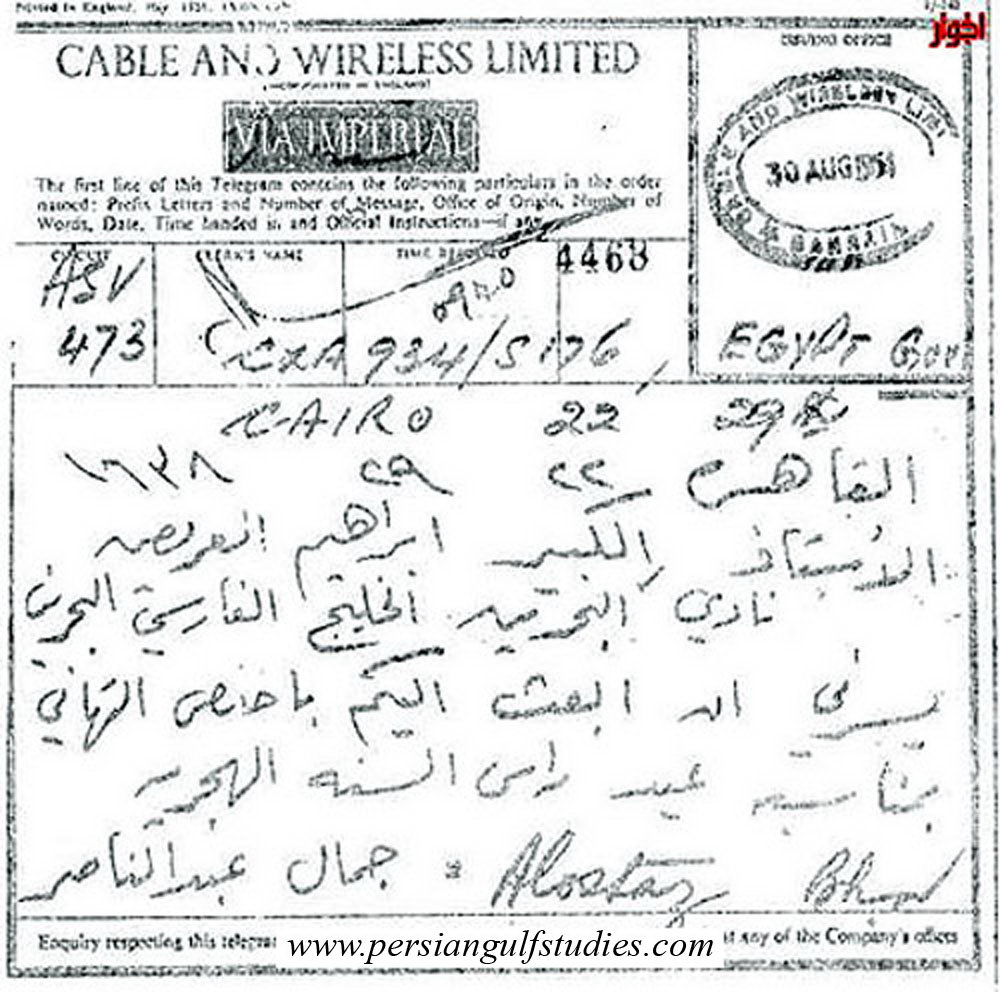 Printed in England, May
اخواز
CABLE AND WIRELESS LIMITED
(INCORPORATED IN ENGLAND)
VIA IMPERIAL
The first line of this Telegram contains the following particulars in the order
named: Prefix Letters and Number of Message, Office of Origin, Number of
Words, Date, Time handed in and Official Instructions—if any.
ISSUING OFFICE
CABLE AND WIRELESS LIMITED
30 AUG
BAHRAIN
CLERK'S NAME
TIME RECEIVED
4468
ASV
473
CXA 934/S176
EGYPT Govt
CAIRO 22 29
القاهره ٢٢ ٢٩ ١٦٣٨
الاستاذ الكبير ابراهيم العريض
نادي البحرين الخليج الفارسي البحرين
يسرني ان ابعث اليكم باخلص التهاني
بمناسبه عيد راس السنه الهجريه
جمال عبدالناصر
Alostaz
Enquiry respecting this telegram
www.persiangulfstudies.com
at any of the Company's offices